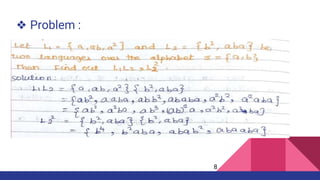 ❖ Problem :
Let L1 = {a, ab, a²} and L2 = {b², aba} be
two languages over the alphabet Σ = {a,b}.
Then Find out L1L2 & L2²
Solution:
L1L2 = {a, ab, a²} {b², aba}
= {ab², aaba, abb², ababa, a²b², a²aba}
= {ab², a²ba, ab³, (ab)²a, a²b², a³ba}
L2² = {b², aba} {b², aba}
= {b⁴, b²aba, abab², abaaba}
8